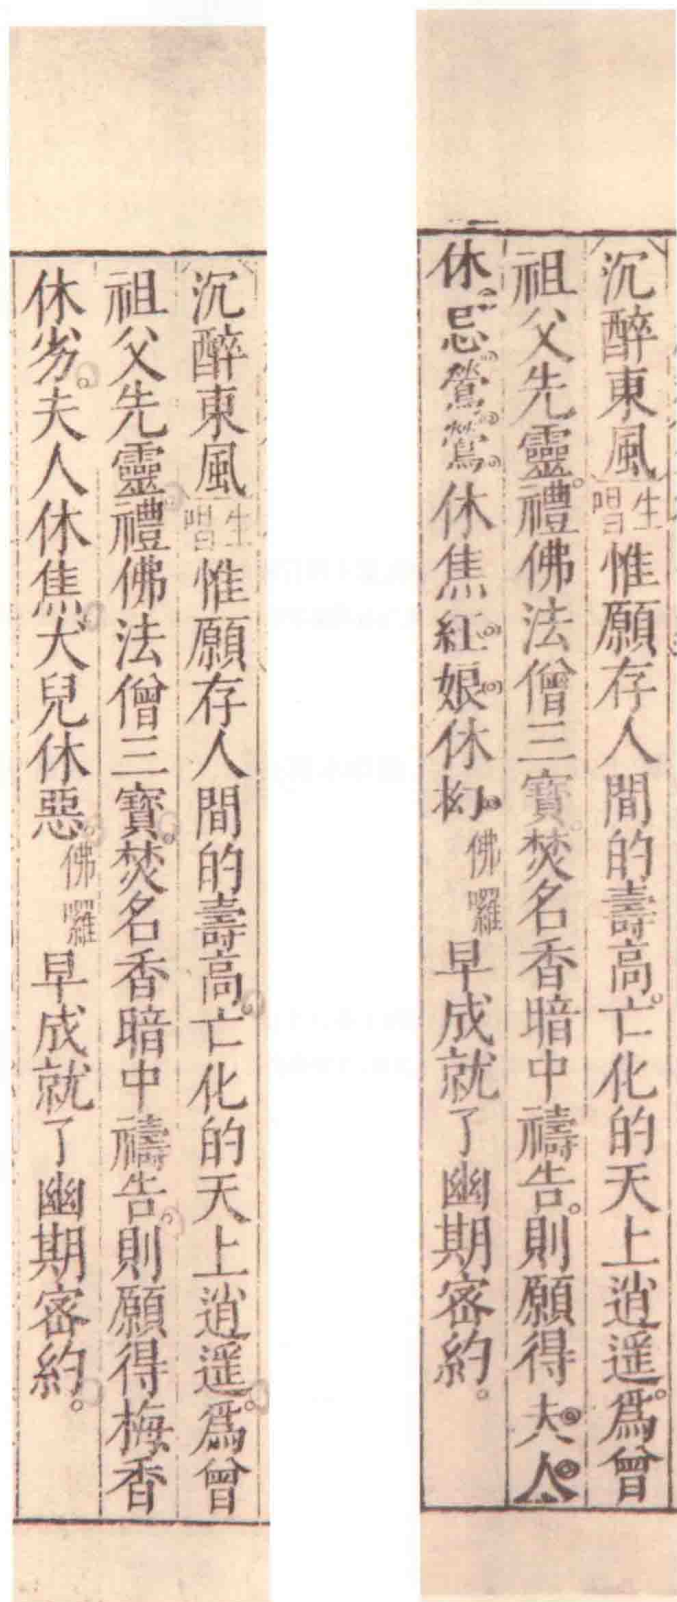 沉醉東風生唱惟願存人間的壽高。亡化的天上逍遥。爲曾
祖父先靈。禮佛法僧三寶。焚名香暗中禱告。則願得夫人
休忌鶯鶯休焦紅娘休佛囉早成就了幽期密約。
沉醉東風生唱惟願存人間的壽高。亡化的天上逍遥。爲曾
祖父先靈。禮佛法僧三寶。焚名香暗中禱告。則願得梅香
休劣。夫人休焦。犬兒休惡。佛囉早成就了幽期密約。